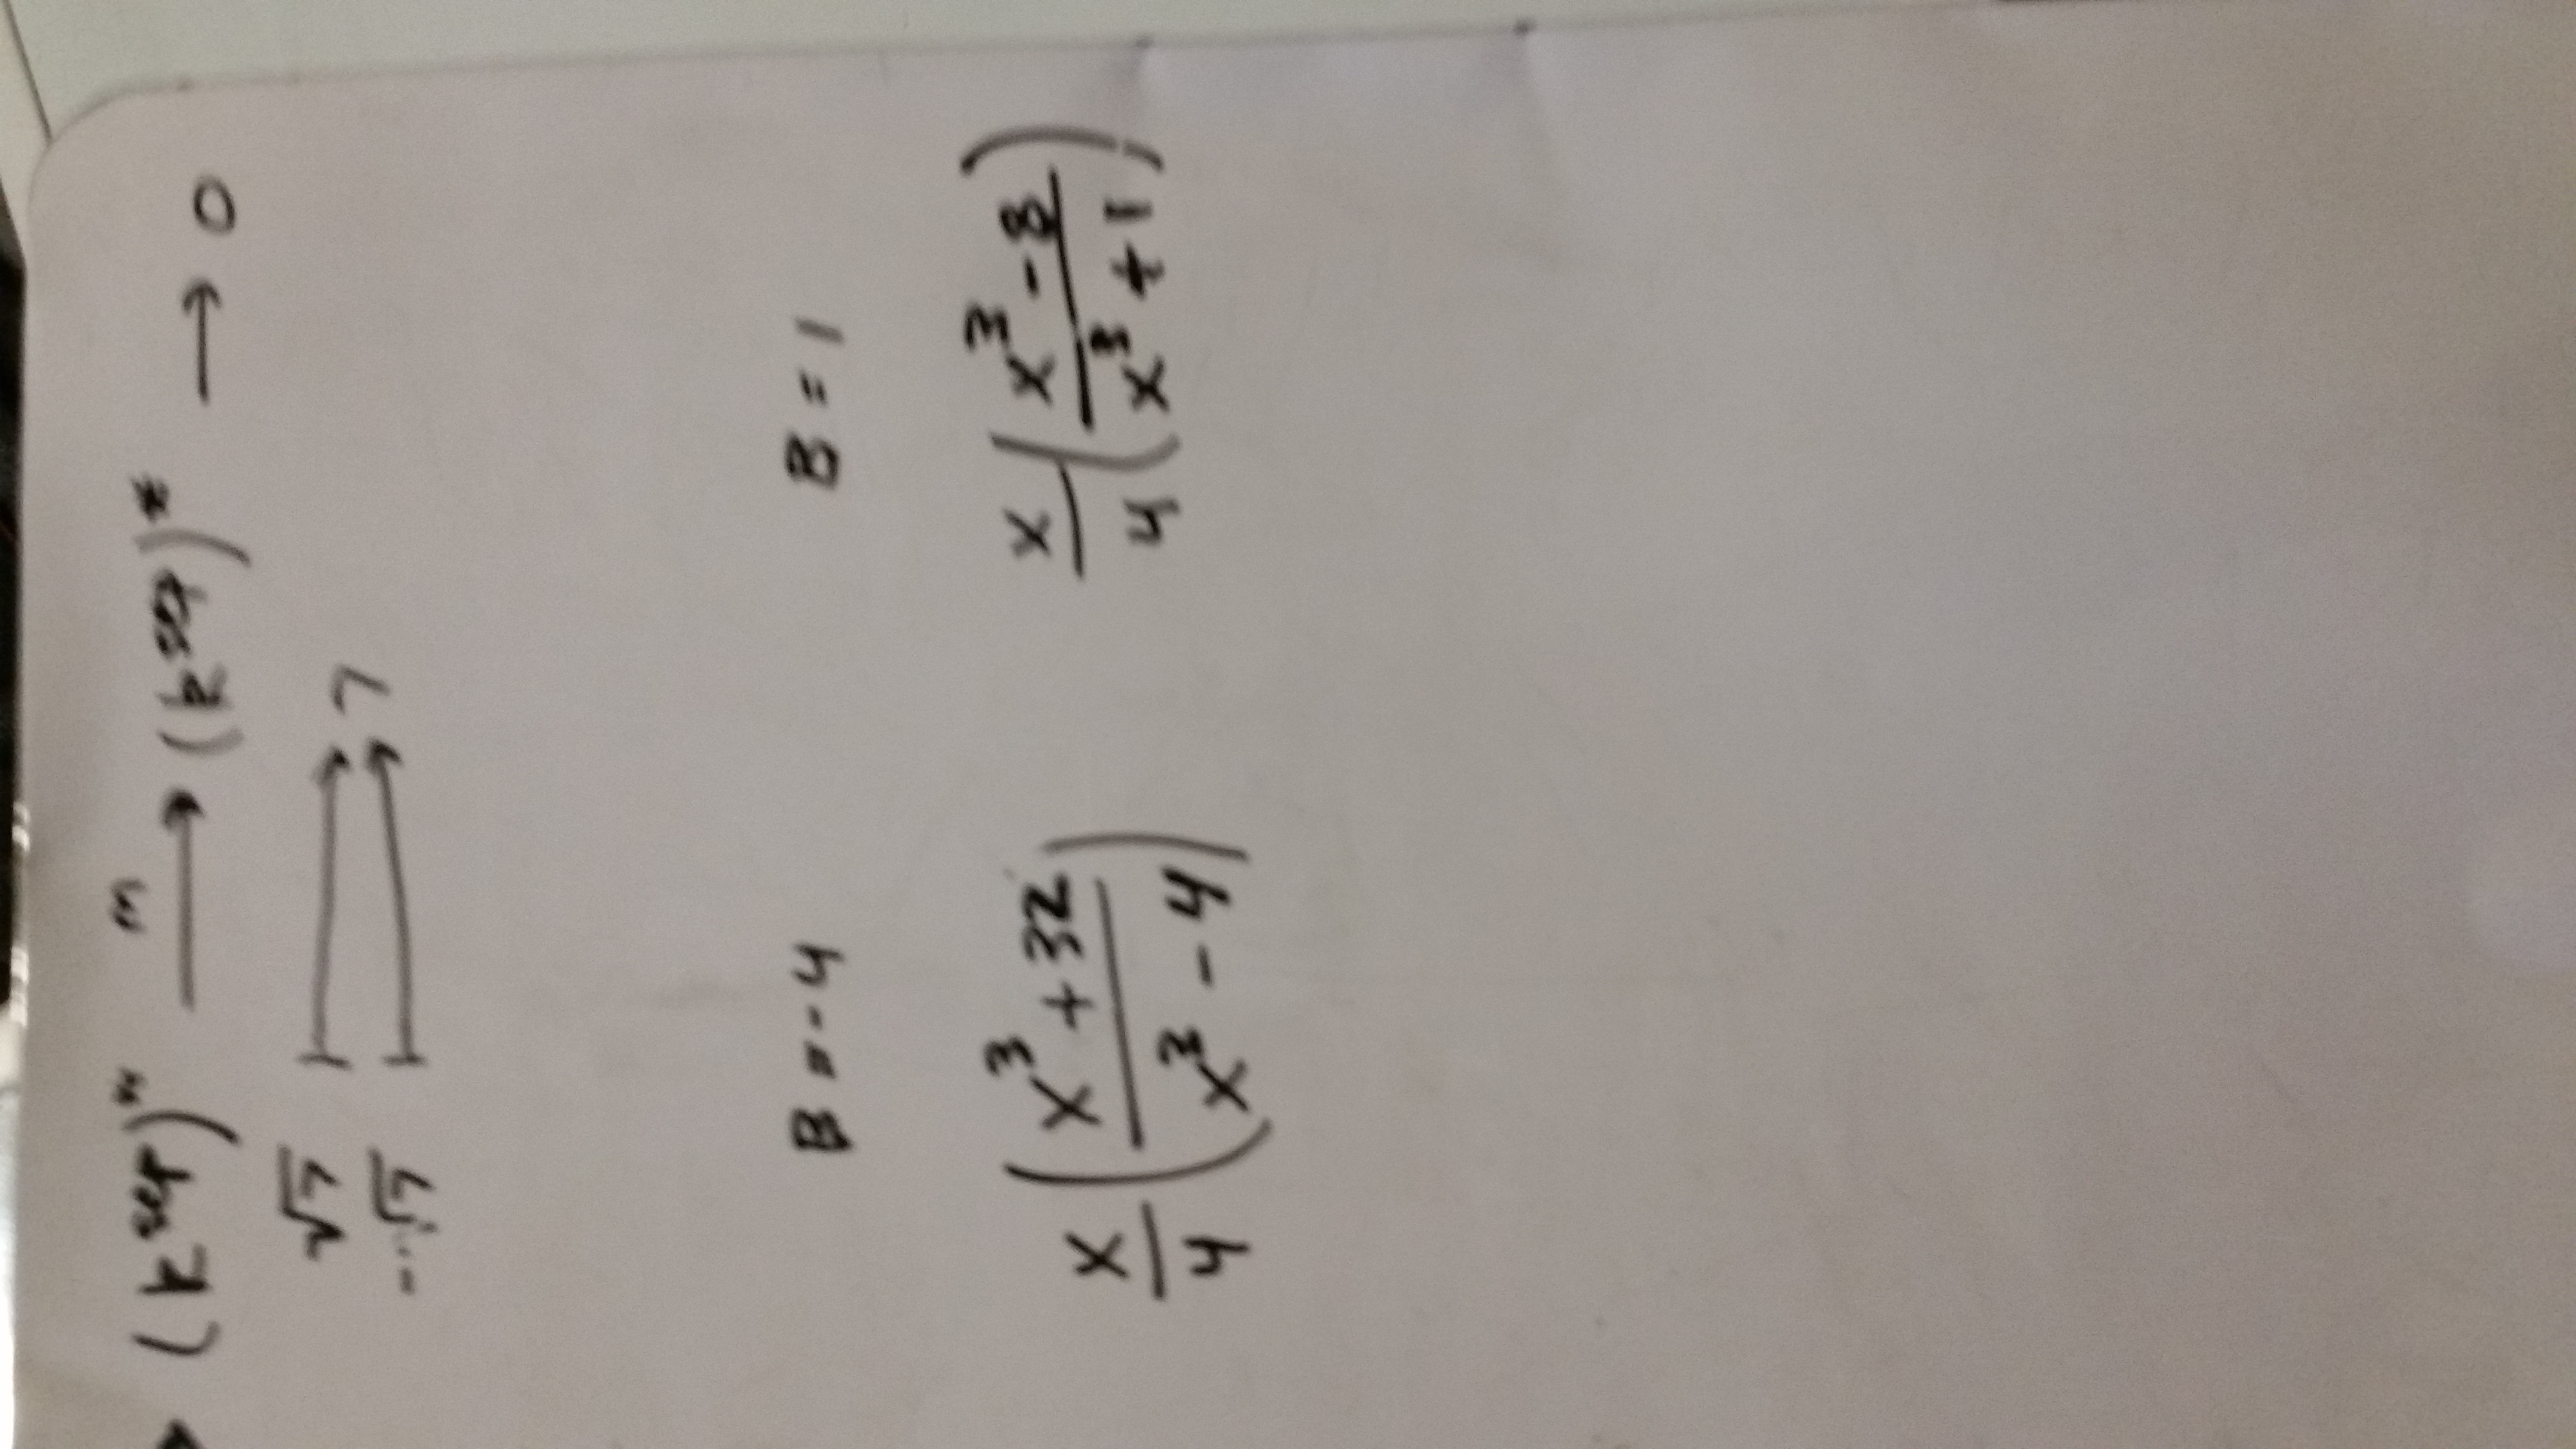 → (k^sep)^* —m→ (k^sep)^* → 0
√7 ↦ 7
-√7 ↦
B = -4 B = 1
x/4 (x³ + 32 / x³ - 4) x/4 (x³ - 8 / x³ + 1)